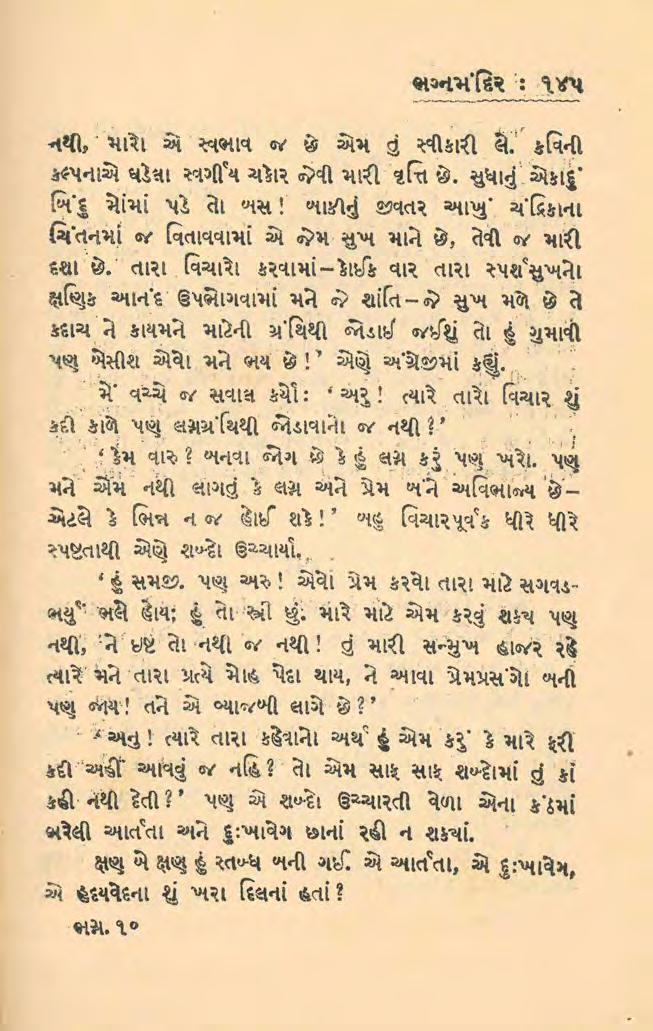 ભગ્નમંદિર : ૧૪૫
નથી, મારો એ સ્વભાવ જ છે એમ તું સ્વીકારી લે. કવિની
કલ્પનાએ ઘડેલા સ્વર્ગીય ચકોર જેવી મારી વૃત્તિ છે. સુધાનું એકાદું
બિંદુ મોંમાં પડે તો બસ! બાકીનું જીવતર આખું ચંદ્રિકાના
ચિંતનમાં જ વિતાવવામાં એ જેમ સુખ માને છે, તેવી જ મારી
દશા છે. તારા વિચારો કરવામાં–કોઈક વાર તારા સ્પર્શસુખનો
ક્ષણિક આનંદ ઉપભોગવામાં મને જે શાંતિ–જે સુખ મળે છે તે
કદાચ ને કાયમને માટેની ગ્રંથિથી જોડાઈ જઈશું તો હું ગુમાવી
પણ બેસીશ એવો મને ભય છે!’ એણે અંગ્રેજીમાં કહ્યું.
મેં વચ્ચે જ સવાલ કર્યો: ‘અરુ! ત્યારે તારો વિચાર શું
કદી કાળે પણ લગ્નગ્રંથિથી જોડાવાનો જ નથી?’
‘કેમ વારુ? બનવા જોગ છે કે હું લગ્ન કરું પણ ખરો. પણ
મને એમ નથી લાગતું કે લગ્ન અને પ્રેમ બંને અવિભાજ્ય છે–
એટલે કે ભિન્ન ન જ હોઈ શકે!’ બહુ વિચારપૂર્વક ધીરે ધીરે
સ્પષ્ટતાથી એણે શબ્દો ઉચ્ચાર્યા.
‘હું સમજી. પણ અરુ! એવો પ્રેમ કરવો તારા માટે સગવડ-
ભર્યું ભલે હોય; હું તો સ્ત્રી છું. મારે માટે એમ કરવું શક્ય પણ
નથી, ને ઇષ્ટ તો નથી જ નથી! તું મારી સન્મુખ હાજર રહે
ત્યારે મને તારા પ્રત્યે મોહ પેદા થાય, ને આવા પ્રેમપ્રસંગો બની
પણ જાય! તને એ વ્યાજબી લાગે છે?’
‘અનુ! ત્યારે તારા કહેવાનો અર્થ હું એમ કરું કે મારે ફરી
કદી અહીં આવવું જ નહિ? તો એમ સાફ સાફ શબ્દોમાં તું કાં
કહી નથી દેતી?’ પણ એ શબ્દો ઉચ્ચારતી વેળા એના કંઠમાં
ભરેલી આર્તતા અને દુઃખાવેગ છાનાં રહી ન શક્યાં.
ક્ષણ બે ક્ષણ હું સ્તબ્ધ બની ગઈ. એ આર્તતા, એ દુઃખાવેગ,
એ હૃદયવેદના શું ખરા દિલનાં હતાં?
ભગ્ન. ૧૦